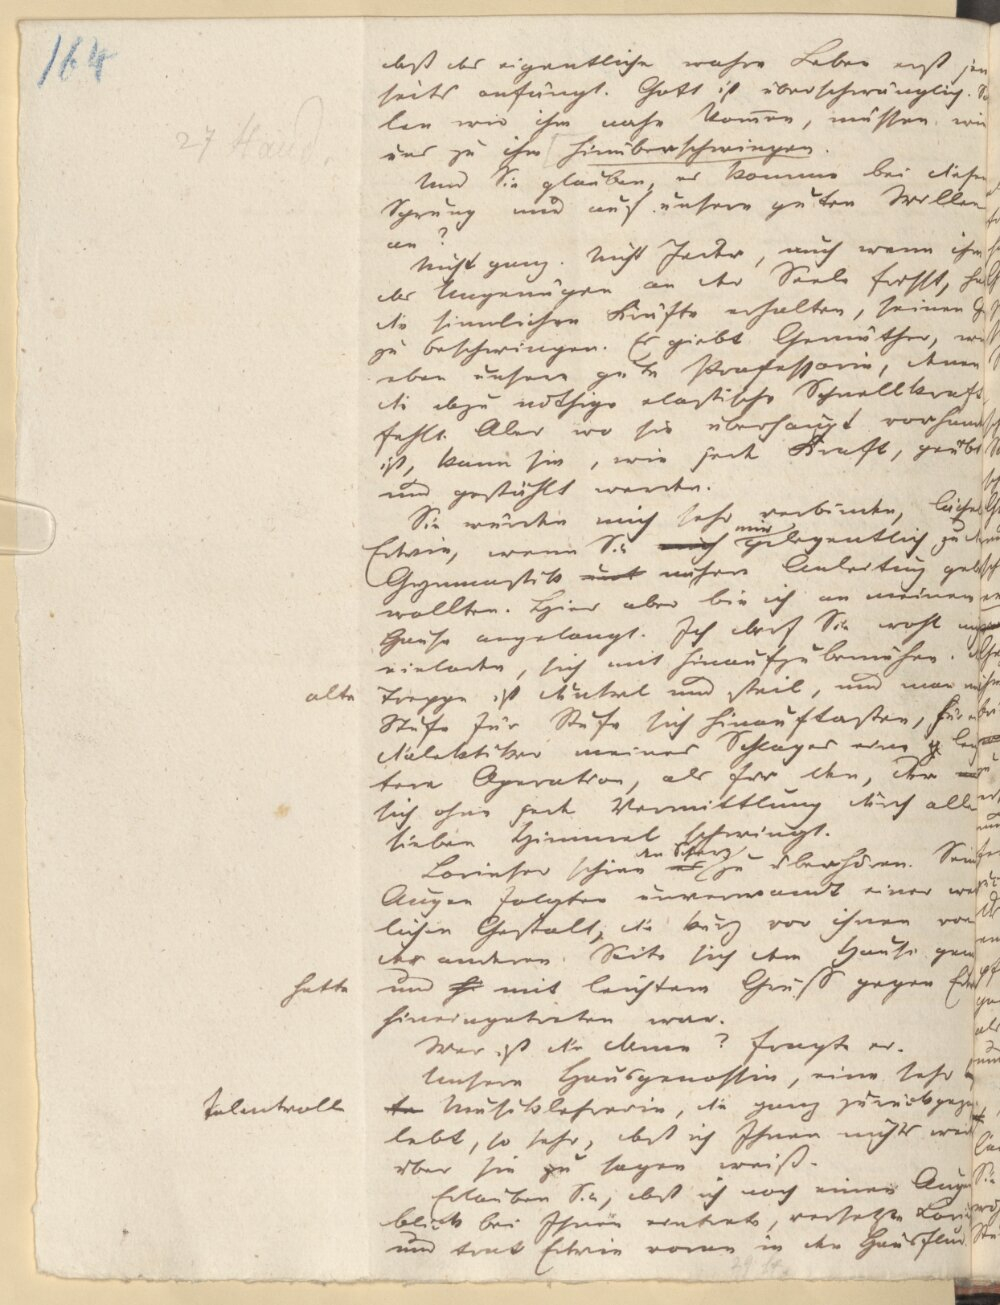 164
27 Hand.
daß das eigentliche wahre Leben erst jen
seits anfängt. Gott ist überschwänglich.
len wir ihm nahe kom̄en, müssen wir
uns zu ihm hinüberschwingen.
Und Sie glauben, es komme bei diesem
Sprung nur auf unsern guten Willen
an?
Nicht ganz. Nicht Jeder, auch wenn ihm
das Ungenügen an der Seele frißt, ha
die sinnlichen Kräfte erhalten, seinen
zu beschwingen. Es giebt Gemüther, wi
eben unsere gute Professorin, denen
die dazu nöthige elastische Schnellkraft
fehlt. Aber wo sie überhaupt vorhand
ist, kann sie, wie jede Kraft, geübt
und gestählt werden.
Sie würden mich sehr verbinden, lieber
mir
Edwin, wenn Sie mich gelegentlich zu d
Gymnastik und nähere Anleitung geb
wollten. Hier aber bin ich an meinem
Hause angelangt. Ich darf Sie wohl
einladen, sich mit hinaufzubemühen.
alte Treppe ist dunkel und steil, und man
Stufe für Stufe sich hinauftasten, für
Dialektiker meines Schlages eine leich
tere Operation, als für den, der
sich ohne jede Vermittlung durch alle
sieben Himmel schwingt.
den Scherz
Lorinser schien es zu überhören. Sein
Augen folgten unverwandt einer wei
lichen Gestalt, die kurz vor ihnen von
der anderen Seite sich dem Hause gen
hatte und mit leichtem Gruß gegen Ed
hineingetreten war.
Wer ist die Dame? fragte er.
Unsere Hausgenossin, eine sehr
talentvolle Musiklehrerin, die ganz zurückgezo
lebt, so sehr, daß ich Ihnen nichts wei
über sie zu sagen weiß.
Erlauben Sie, daß ich noch einen Augen
blick bei Ihnen eintrete, versetzte Lorin
und trat Edwin voran in den Hausflur